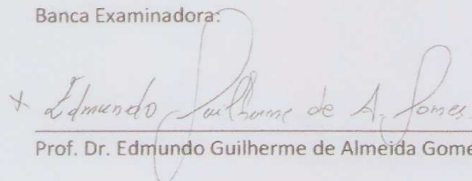 Banca Examinadora:
x Edmundo Guilherme de A. Gomes.
Prof. Dr. Edmundo Guilherme de Almeida Gome